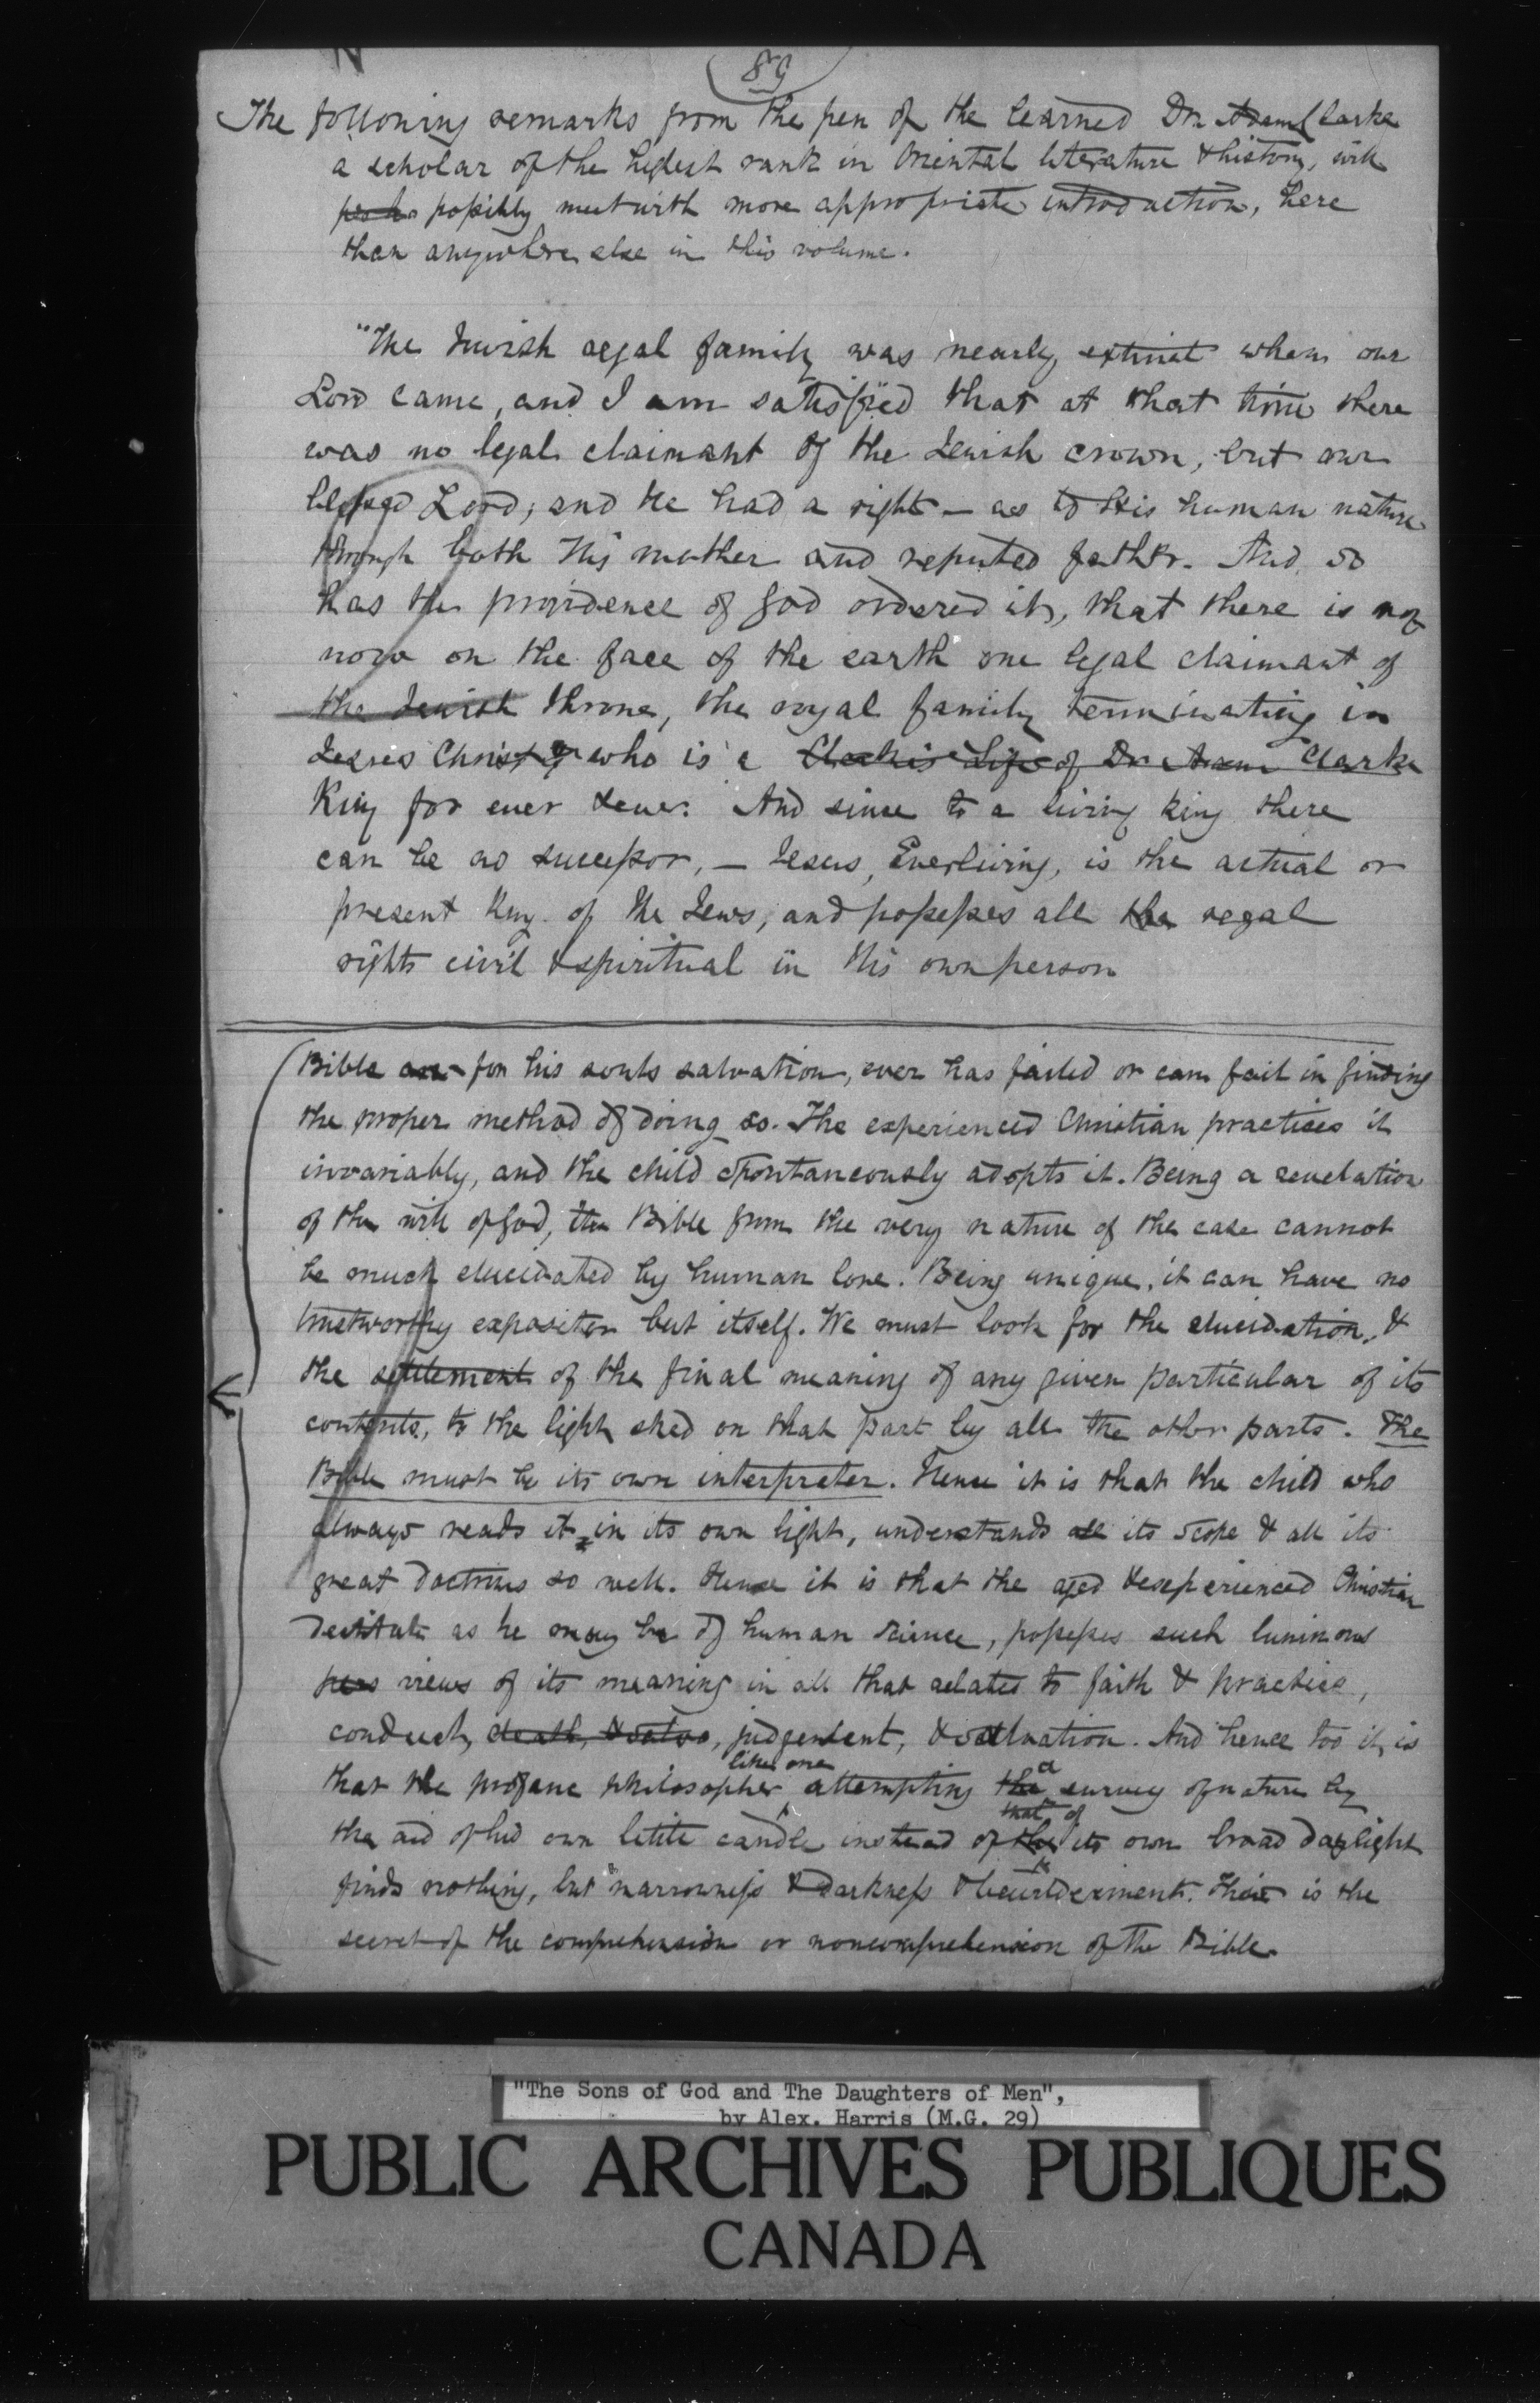 89
The following remarks from the pen of the learned Dr. Adam Clarke
a scholar of the highest rank in Oriental literature & history, will
possibly meet with more appropriate introduction, here
than anywhere else in this volume.
"The Jewish regal family was nearly extinct when our
Lord came, and I am satisfied that at that time there
was no legal claimant of the Jewish crown, but our
blessed Lord; and He had a right – as to His human nature
through both His mother and reputed father. And so
has the providence of God ordered it, that there is not
now on the face of the earth one legal claimant of
the Jewish throne, the royal family terminating in
Jesus Christ who is a Clarke's Life of Dr Adam Clarke
King for ever & ever. And since to a living king there
can be no successor, – Jesus, Everliving, is the actual or
present King of the Jews, and possesses all the regal
rights civil & spiritual in His own person
Bible for his souls salvation, ever has failed or can fail in finding
the proper method of doing so. The experienced Christian practices it
invariably, and the child spontaneously adopts it. Being a revelation
of the will of God, the Bible from the very nature of the case cannot
be much elucidated by human lore. Being unique, it can have no
trustworthy expositor but itself. We must look for the elucidation, &
the settlement of the final meaning of any given particular of its
contents, to the light shed on that part by all the other parts. The
Bible must be its own interpreter. Hence it is that the child who
always reads it in its own light, understands all its scope & all its
great doctrines so well. Hence it is that the aged & experienced Christian
destitute as he may be of human science, possesses such luminous
views of its meaning in all that relates to faith & practice,
conduct, death, judgement, & salvation. And hence too it is
that the profane philosopher like one attempting the a survey of nature by
the aid of his own little candle instead of the that of its own broad daylight
finds nothing, but narrowness & darkness & bewilderment. This is the
secret of the comprehension or noncomprehension of the Bible.
"The Sons of God and The Daughters of Men",
by Alex. Harris (M.G. 29)
PUBLIC ARCHIVES PUBLIQUES
CANADA